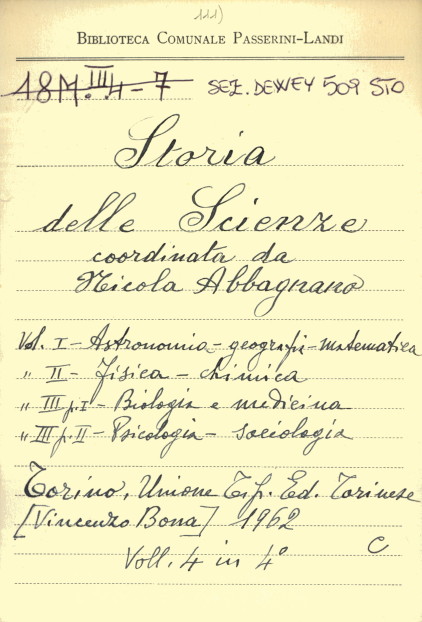 111)
BIBLIOTECA COMUNALE PASSERINI-LANDI
18M.III.4-7 SEZ. DEWEY 509 STO
Storia
delle Scienze
coordinata da
Nicola Abbagnano
Vol. I - Astronomia - geografia - matematica
" II - Fisica - chimica
" III p. I - Biologia e medicina
" III p. II - Psicologia - sociologia
Torino, Unione Tip. Ed. Torinese
[Vincenzo Bona] 1962
Voll. 4 in 4°
C